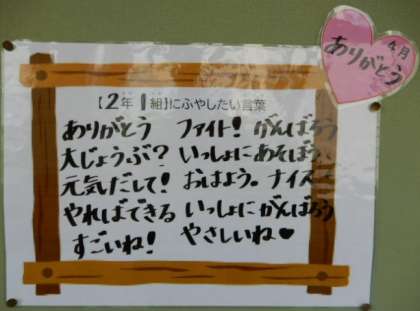 4月
ありがとう
【2年 1組】にふやしたい言葉
ありがとう ファイト! がんばろう
大じょうぶ? いっしょにあそぼう、
元気だして! おはよう。ナイス
やればできる いっしょにがんばろう
すごいね! やさしいね♥